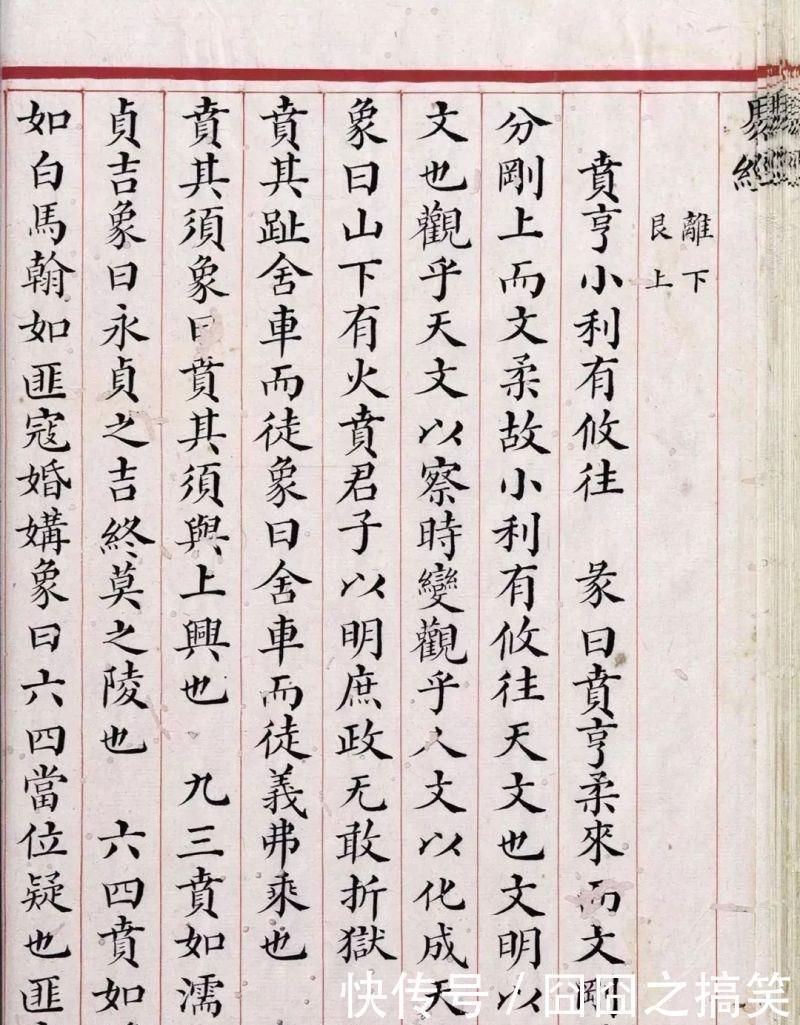 易經
離下
艮上
賁亨小利有攸往　彖曰賁亨柔來而文剛
分剛上而文柔故小利有攸往天文也文明以
文也觀乎天文以察時變觀乎人文以化成天
象曰山下有火賁君子以明庶政无敢折獄
賁其趾舍車而徒象曰舍車而徒義弗乘也
賁其須象曰賁其須與上興也　九三賁如濡
貞吉象曰永貞之吉終莫之陵也　六四賁如
如白馬翰如匪寇婚媾象曰六四當位疑也匪
快传号/囧囧之搞笑